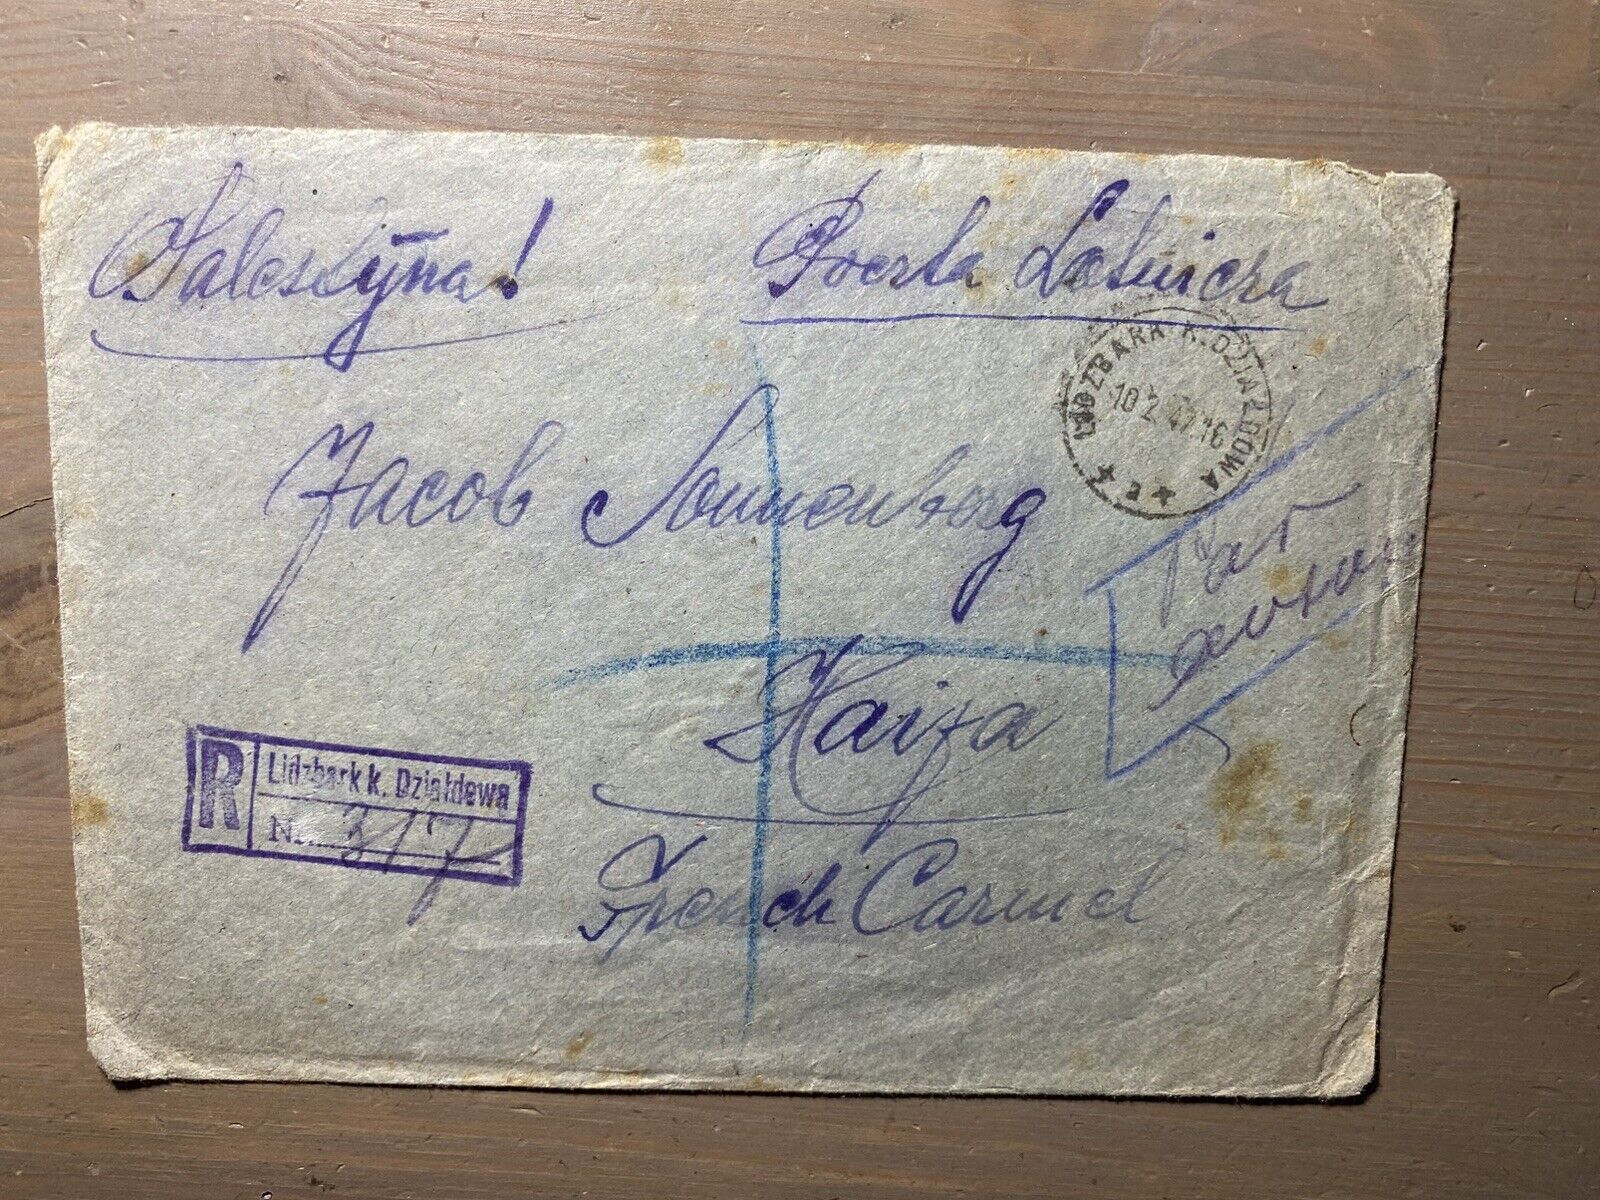 Palestyna!
Poczta Lotnicza
LIDZBARK K. DZIAŁDOWA
10.2.47.16
Jacob Sonnenberg
Par avion
Haifa
R Lidzbark k. Działdowa
Nr. 317
French Carmel